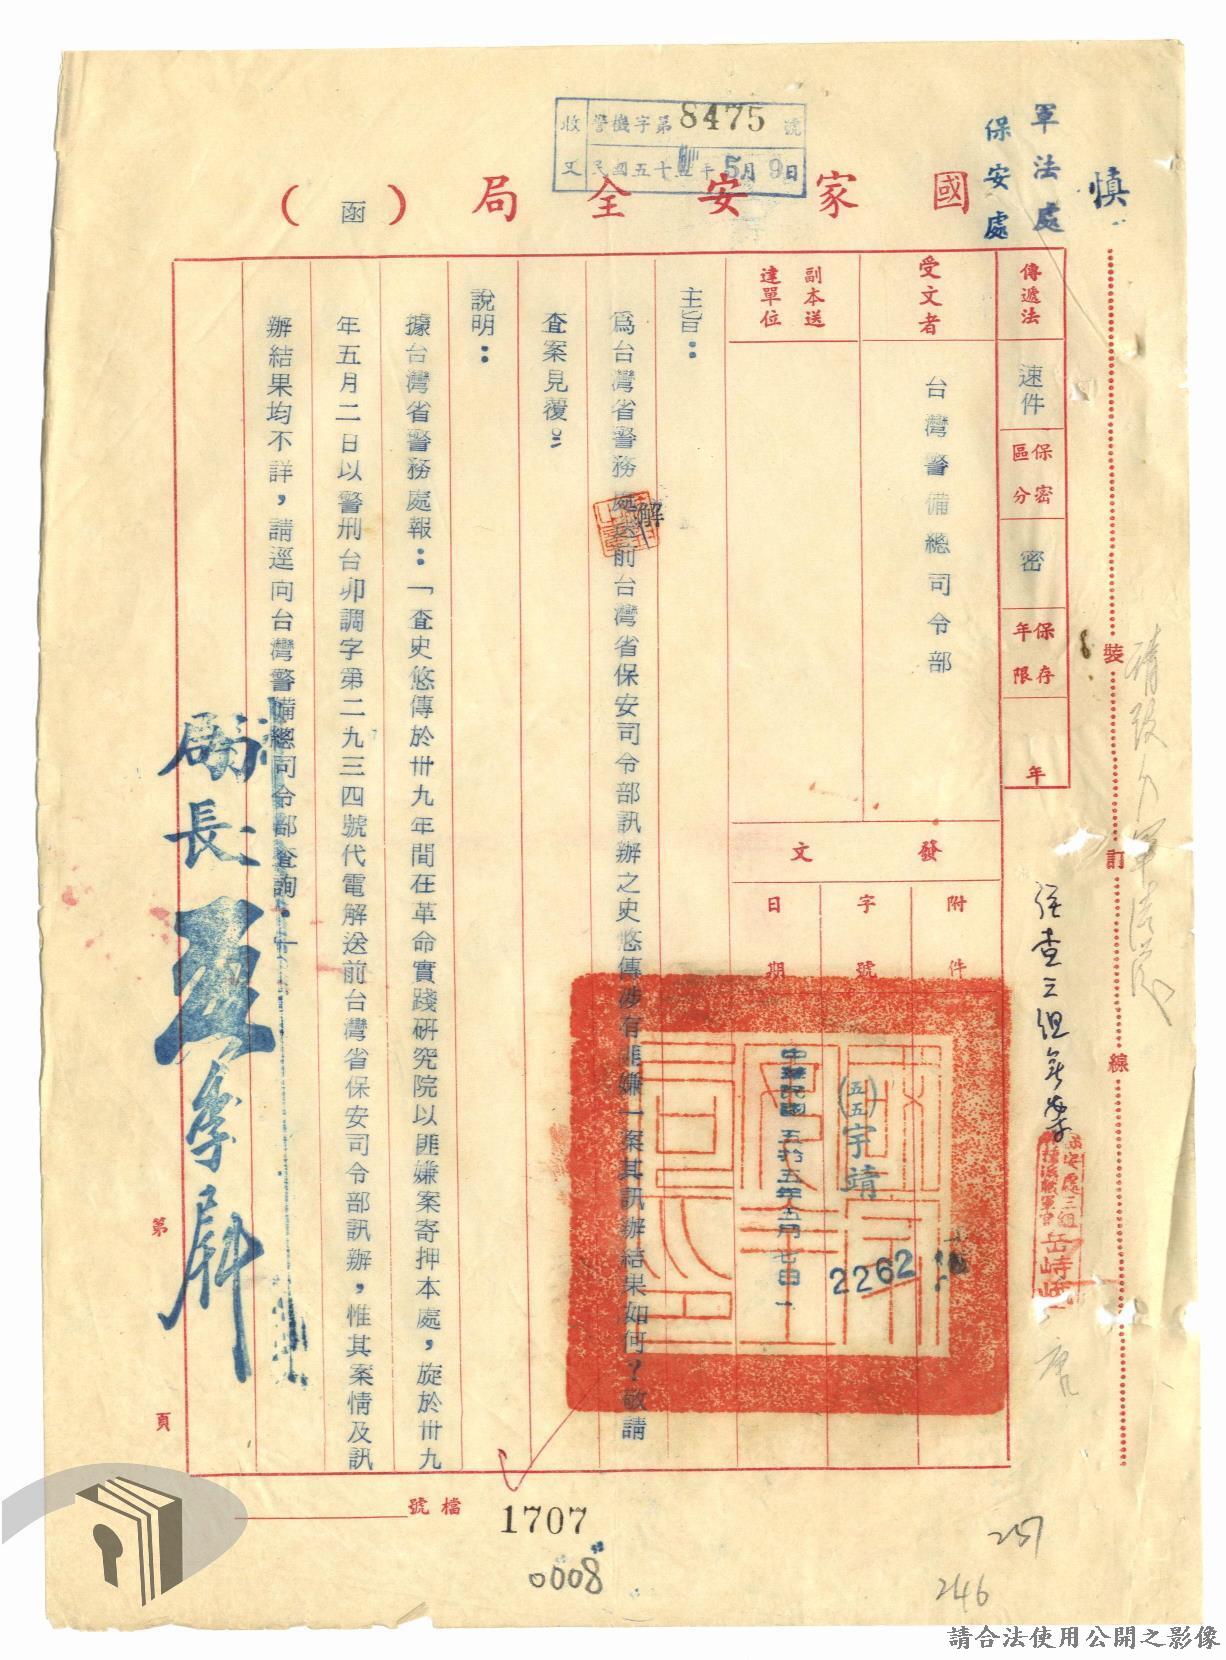 慎
軍法處
保安處
收文 警機字第8475號
民國五十五年5月9日
國家安全局(函)
傳遞法 速件
保密區分 密
保存年限 年
受文者 台灣警備總司令部
副本送達單位
發文
附件
字號 (五五)宇靖2262
日期 中華民國五拾五年五月七日
主旨：
為台灣省警務處解送前台灣省保安司令部訊辦之史悠傳涉有匪嫌一案其訊辦結果如何？敬請
查案見覆。
說明：
據台灣省警務處報：「查史悠傳於卅九年間在革命實踐研究院以匪嫌案寄押本處，旋於卅九
年五月二日以警刑台卯調字第二九三四號代電解送前台灣省保安司令部訊辦，惟其案情及訊
辦結果均不詳，請逕向台灣警備總司令部查詢。」
局長
裝
訂
線
經查三組無案
保安處三組
岳峙
第
頁
檔號
1707
0008
251
246
請合法使用公開之影像